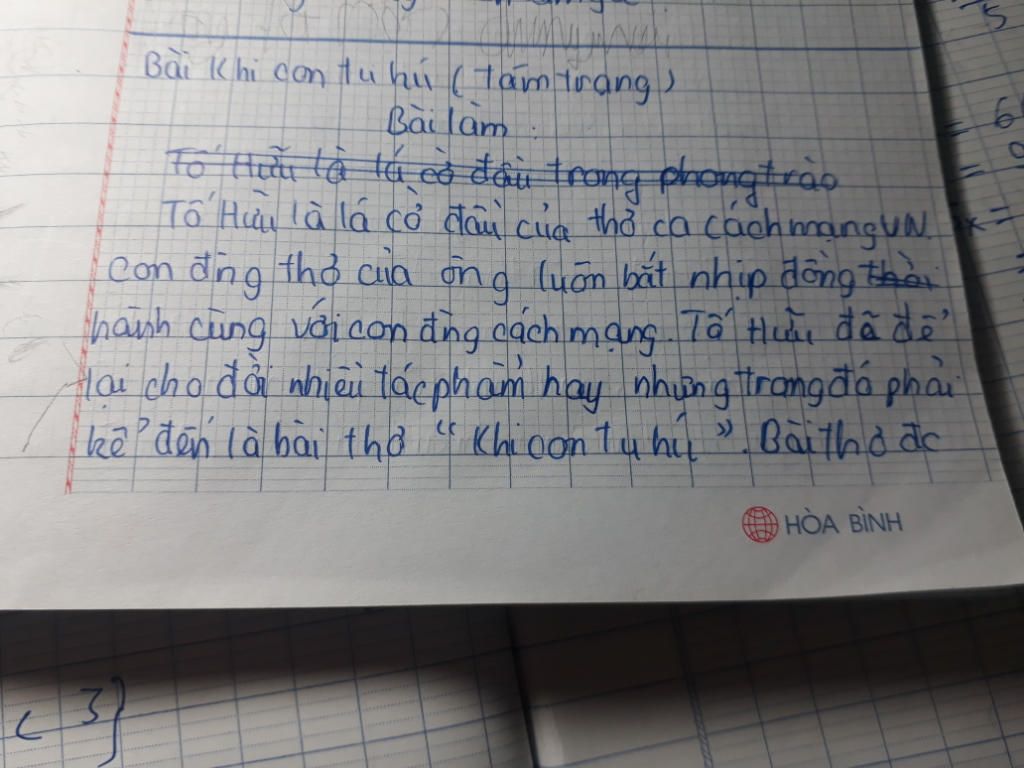 Bài Khi con tu hú (Tâm trạng)
Bài làm:
Tố Hữu là lá cờ đầu trong phong trào
Tố Hữu là lá cờ đầu của thơ ca cách mạng VN.
con đng thơ của ông luôn bắt nhịp đồng
hành cùng với con đng cách mạng. Tố Hữu đã để
lại cho đời nhiều tác phẩm hay nhưng trong đó phải
kể đến là bài thơ "Khi con tu hú". Bài thơ đc
HÒA BÌNH
< 3}